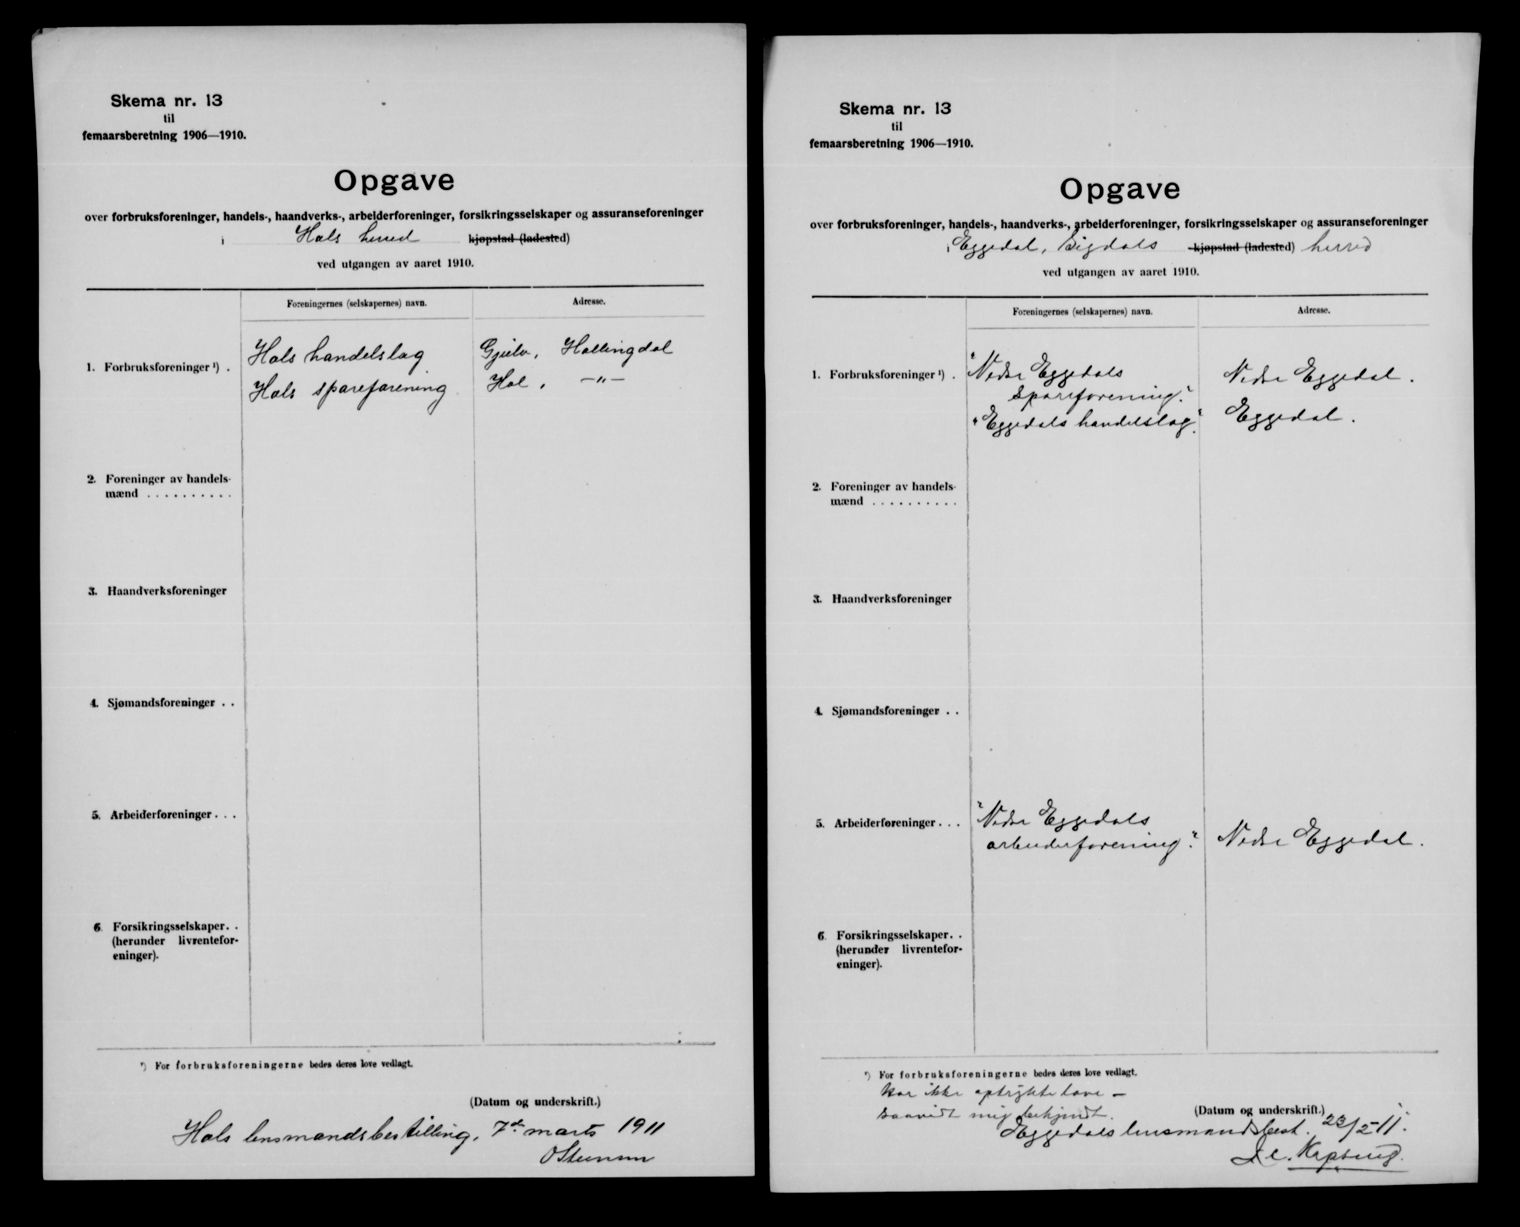 Skema nr. 13
til
femaarsberetning 1906—1910.
Opgave
over forbruksforeninger, handels-, haandverks-, arbeiderforeninger, forsikringsselskaper og assuranseforeninger
i Hols herred kjøpstad (ladested)
ved utgangen av aaret 1910.
Foreningernes (selskapernes) navn.
Adresse.
1. Forbruksforeninger ¹) .
Hols handelslag
Gjeilo, Hallingdal
Hols spareforening
Hol, —"—
2. Foreninger av handels-
mænd . . . . . . . . . .
3. Haandverksforeninger
4. Sjømandsforeninger . .
5. Arbeiderforeninger . . .
6. Forsikringsselskaper. .
(herunder livrentefor-
eninger).
¹) For forbruksforeningerne bedes deres love vedlagt.
(Datum og underskrift.)
Hols lensmandsbestilling, 7de marts 1911
Skema nr. 13
til
femaarsberetning 1906—1910.
Opgave
over forbruksforeninger, handels-, haandverks-, arbeiderforeninger, forsikringsselskaper og assuranseforeninger
i Eggedal, Sigdals kjøpstad (ladested) herred
ved utgangen av aaret 1910.
Foreningernes (selskapernes) navn.
Adresse.
1. Forbruksforeninger ¹) .
"Nedre Eggedals
Spareforening."
Nedre Eggedal.
"Eggedals handelslag".
Eggedal.
2. Foreninger av handels-
mænd . . . . . . . . . .
3. Haandverksforeninger
4. Sjømandsforeninger . .
5. Arbeiderforeninger . . .
"Nedre Eggedals
arbeiderforening".
Nedre Eggedal.
6. Forsikringsselskaper. .
(herunder livrentefor-
eninger).
¹) For forbruksforeningerne bedes deres love vedlagt.
Har ikke optrykte love —
saavidt mig bekjendt.
(Datum og underskrift.)
Eggedals lensmandsbest. 23/2-11.